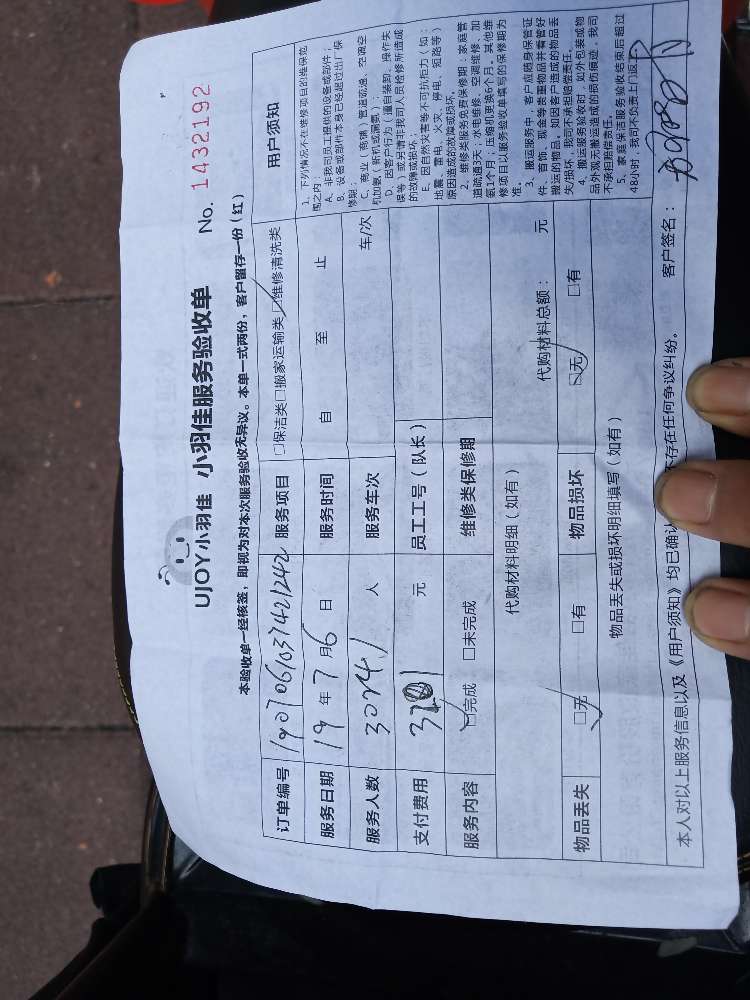 UJOY小羽佳 小羽佳服务验收单 No. 1432192
本验收单一经核签，即视为对本次服务验收无异议。本单一式两份，客户留存一份（红）
订单编号 190706103742124​2 服务项目 □保洁类□搬家运输类□维修清洗类
服务日期 19 年 7 月 6 日 服务时间 自 至 止
服务人数 人 服务车次 车/次
支付费用 元 员工工号（队长）
服务内容 □完成 □未完成 维修类保修期
代购材料明细（如有） 代购材料总额： 元
物品丢失 □无 □有 物品损坏 □无 □有
物品丢失或损坏明细填写（如有）
用户须知
1、下列情况不在维修项目的维保范
围之内：
A、非我司员工提供的设备或部件；
B、设备或部件本身已经超过出厂保
修期；
C、商业（商铺）管道疏通、空调空
机加氨（新机或漏氨）；
D、因客户行为（擅自装卸、操作失
误等）或另请非我司人员检修所造成
的故障或损坏；
E、因自然灾害等不可抗拒力（如：
地震、雷电、火灾、停电、短路等）
原因造成的故障或损坏。
2、维修类服务免费保修期：家庭管
道疏通3天；水电维修、空调维修、加
氨1个月；压缩机更换6个月，其他维
修项目以服务验收单填写的保修期为
准。
3、搬运服务中，客户应随身保管证
件、首饰、现金等贵重物品并看管好
搬运的物品，如因客户造成的物品丢
失/损坏，我司不承担赔偿责任。
4、搬运服务验收时，如外包装或物
品外观无搬运造成的损伤痕迹，我司
不承担赔偿责任。
5、家庭保洁服务验收结束后超过
48小时，我司不负责上门返工。
本人对以上服务信息以及《用户须知》均已确认 不存在任何争议纠纷。 客户签名：